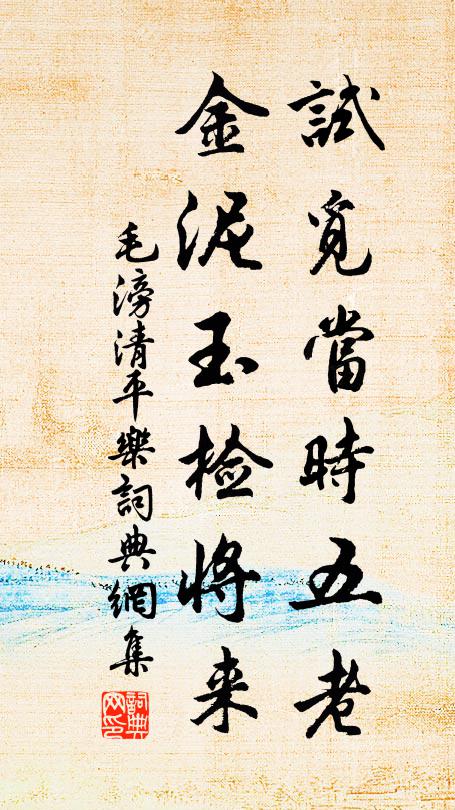 試覓當時五老
金泥玉檢將来
毛滂清平樂詞典網集
詞典网印